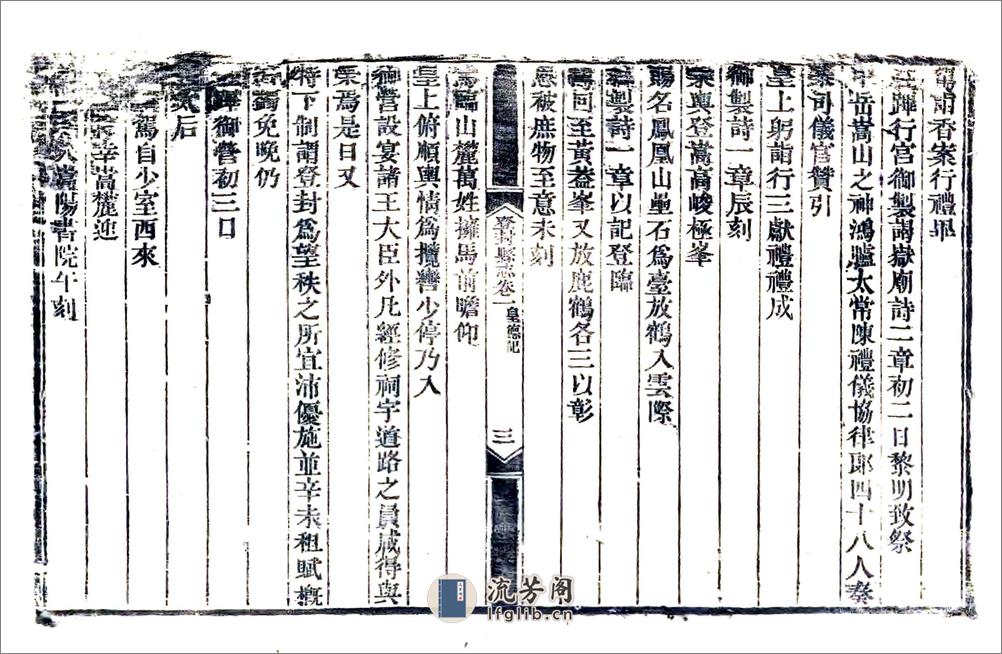 詣香案行禮畢
蹕行宮御製謁嶽廟詩二章初二日黎明致祭
岳嵩山之神鴻臚太常陳禮儀協律郎四十八人奏
司儀官贊引
皇上躬詣行三獻禮禮成
御製詩一章辰刻
乘輿登嵩高峻極峯
賜名鳳凰山壘石爲臺放鶴入雲際
製詩一章以記登臨
可至黃葢峯又放鹿鶴各三以彰
恩被庶物至意未刻
登封縣志卷一
皇德記
三
臨山麓萬姓擁馬前瞻仰
皇上俯順輿情爲攬轡少停乃入
御營設宴諸王大臣外凡經修祠宇道路之員咸得與
焉是日又
特下制謂登封爲望秩之所宜沛優施並辛未租賦槪
蠲免晚仍
御營初三日
太后
駕自少室西來
幸嵩麓迎
嵩陽書院午刻
流芳阁
lfglib.cn